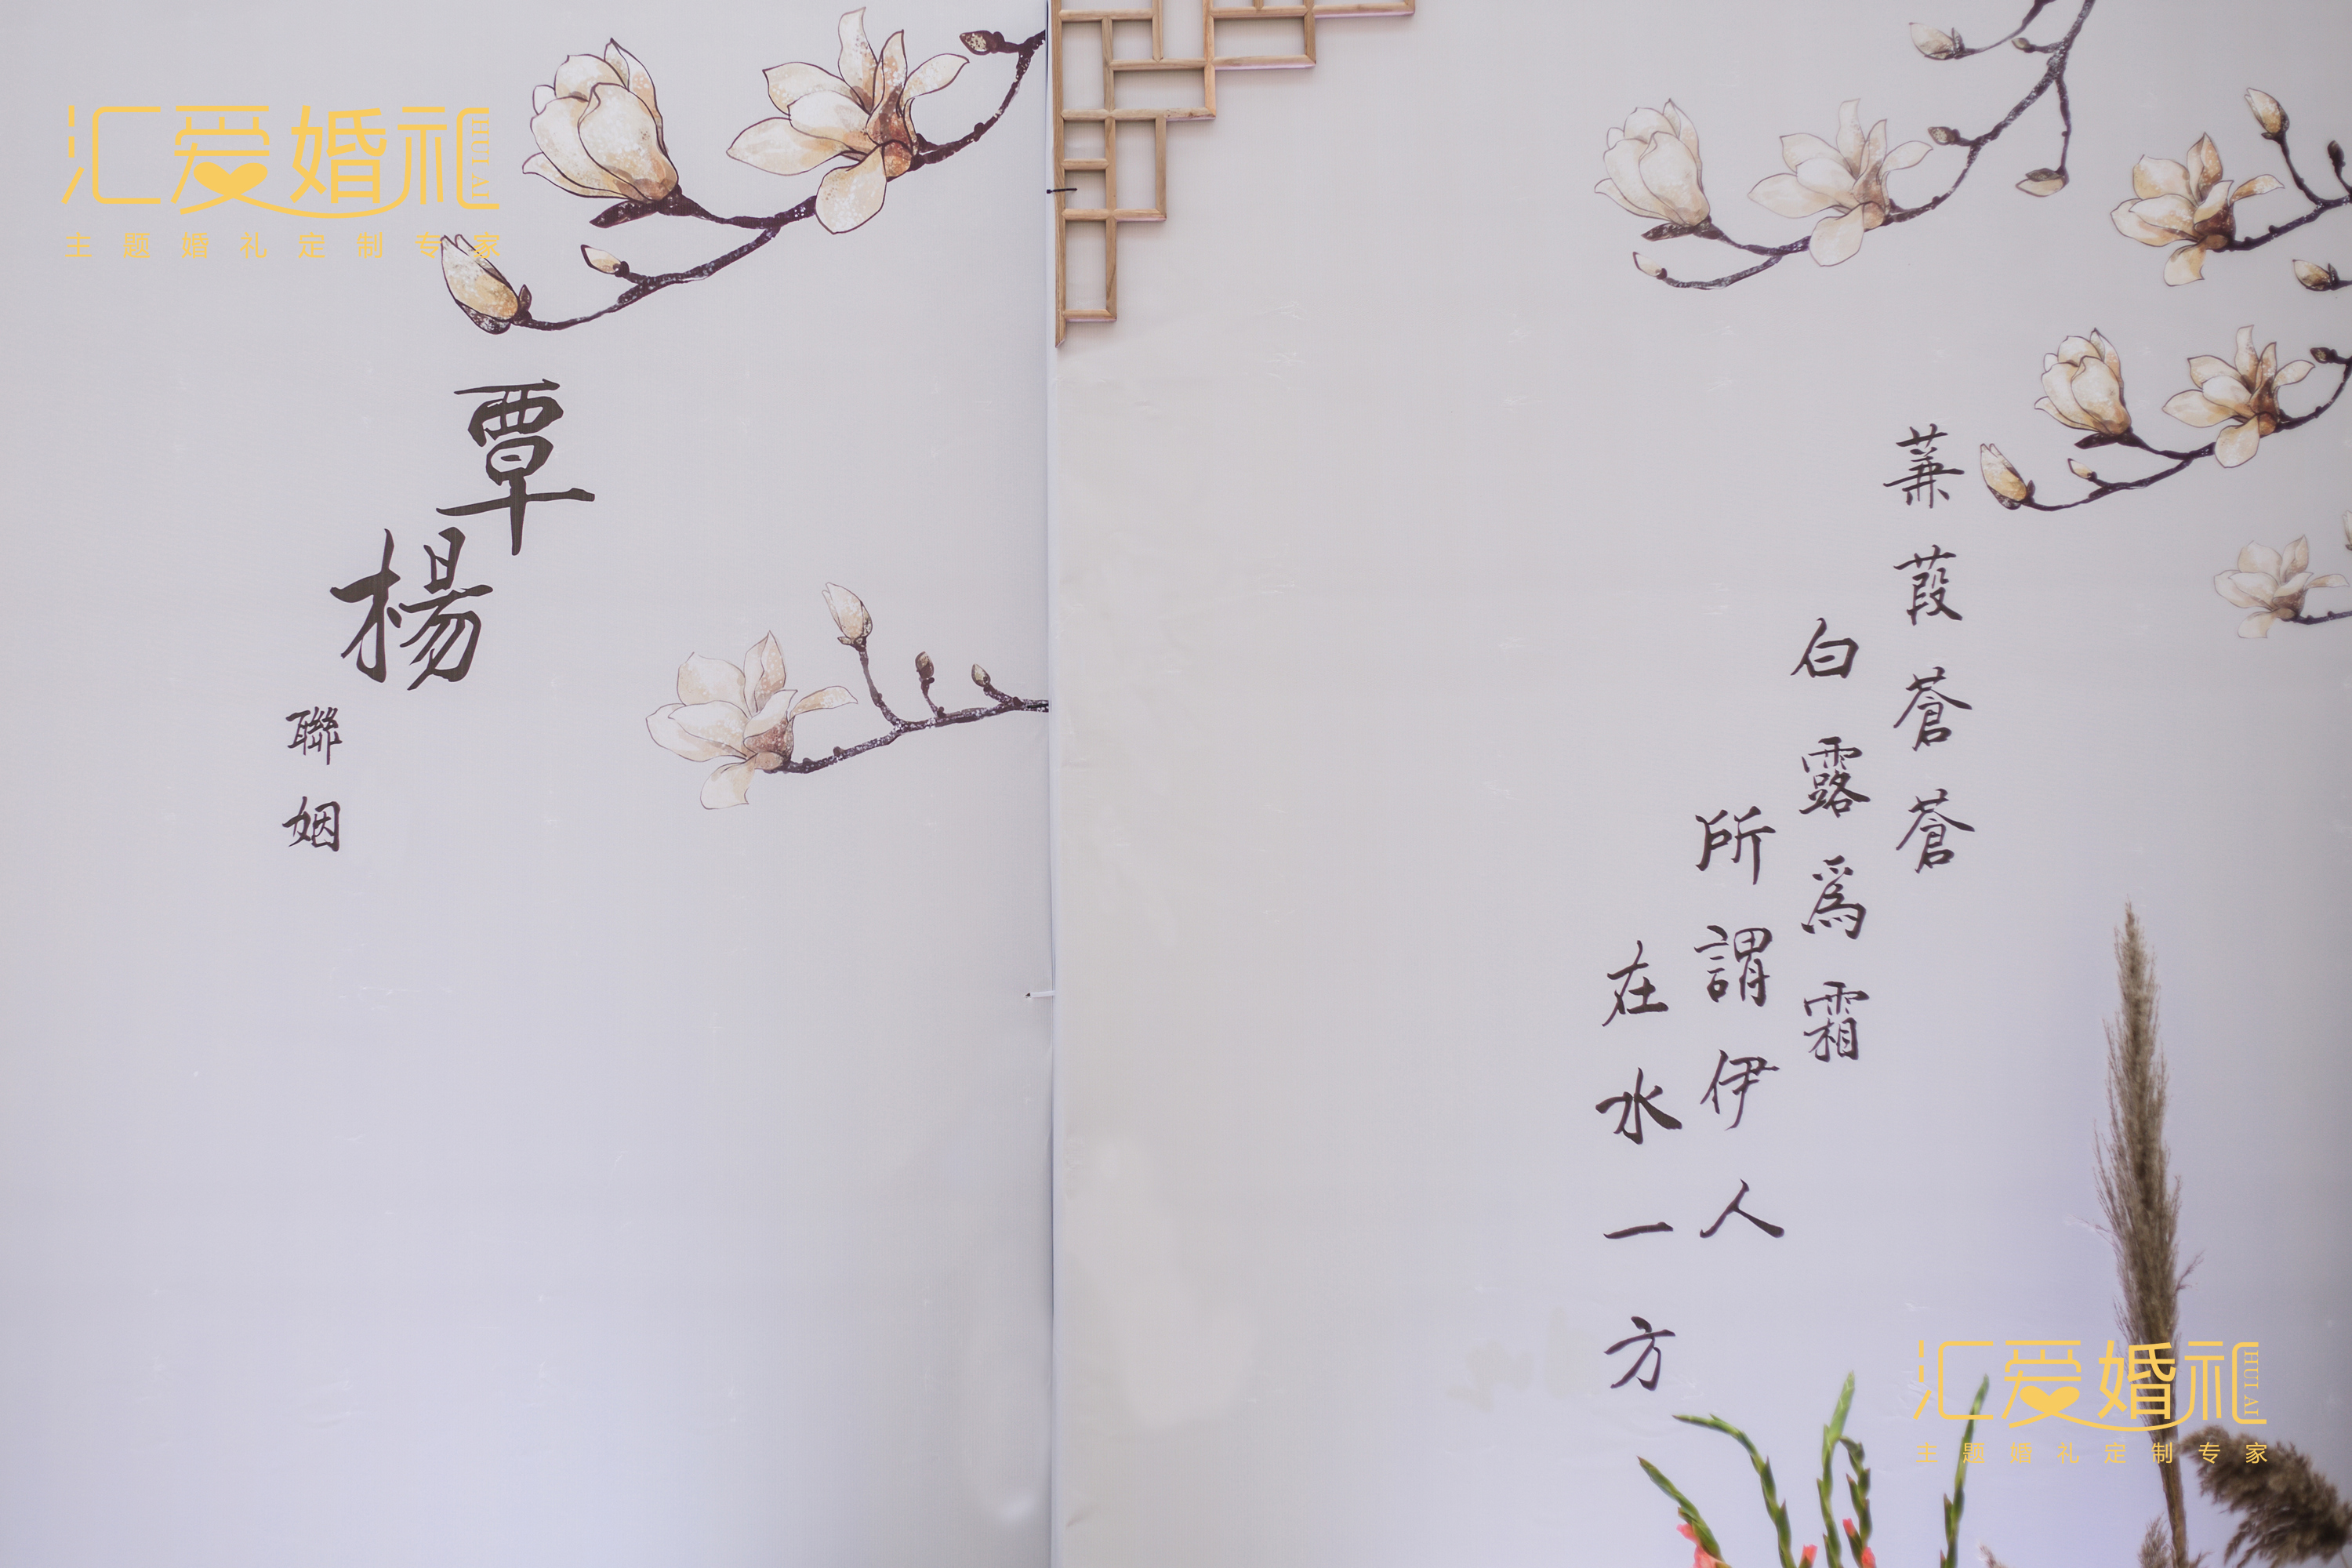 汇爱婚礼
HUI AI
主题婚礼定制专家
覃
楊
聯姻
蒹葭蒼蒼
白露爲霜
所謂伊人
在水一方
汇爱婚礼
HUI AI
主题婚礼定制专家